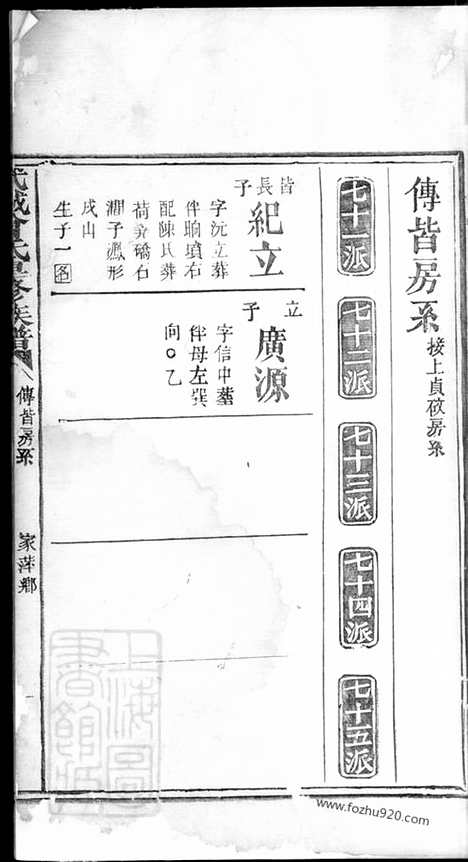 傳皆房系 接上貞破房系
七十一派
七十二派
七十三派
七十四派
七十五派
皆長子
紀立
字沅立葬
伴晌墳右
配陳氏葬
荷
石
潤子鳳形
戌山
生子一
立子
廣源
字信中葬
伴母左巽
向〇乙
武城曾氏重修族譜
傳皆房系
家萍鄉
上海圖書館藏
www.fozhu920.com